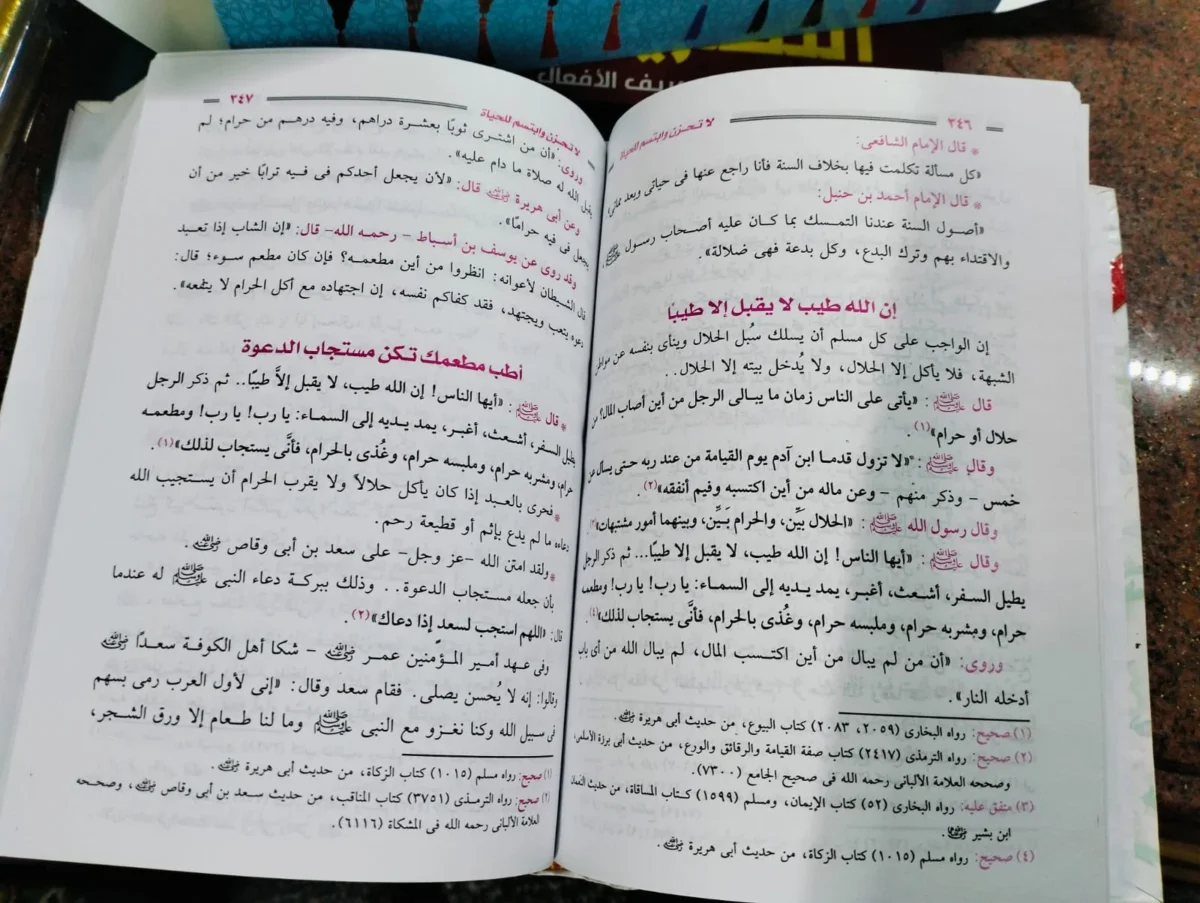 الأفعال
٣٤٦
لا تحزن وابتسم للحياة
* قال الإمام الشافعى:
«كل مسألة تكلمت فيها بخلاف السنة فأنا راجع عنها فى حياتى وبعد مماتى»
* قال الإمام أحمد بن حنبل:
«أصول السنة عندنا التمسك بما كان عليه أصحاب رسول ﷺ،
والاقتداء بهم وترك البدع، وكل بدعة فهى ضلالة».
إن الله طيب لا يقبل إلا طيبًا
إن الواجب على كل مسلم أن يسلك سُبل الحلال وينأى بنفسه عن مواطن
الشبهة، فلا يأكل إلا الحلال، ولا يُدخل بيته إلا الحلال..
قال ﷺ: «يأتى على الناس زمان ما يبالى الرجل من أين أصاب المال؟ من
حلال أو حرام»(١).
وقال ﷺ: «لا تزول قدما ابن آدم يوم القيامة من عند ربه حتى يسأل عن
خمس - وذكر منهم - وعن ماله من أين اكتسبه وفيم أنفقه»(٢).
وقال رسول الله ﷺ: «الحلال بَيِّن، والحرام بَيِّن، وبينهما أمور مشتبهات»(٣)
وقال ﷺ: «أيها الناس! إن الله طيب، لا يقبل إلا طيبًا... ثم ذكر الرجل
يطيل السفر، أشعث، أغبر، يمد يديه إلى السماء: يا رب! يا رب! ومطعمه
حرام، ومشربه حرام، وملبسه حرام، وغُذى بالحرام، فأنَّى يستجاب لذلك»(٤)
وروى: «أن من لم يبال من أين اكتسب المال، لم يبال الله من أى باب
أدخله النار».
(١) صحيح: رواه البخارى (٢٠٥٩، ٢٠٨٣) كتاب البيوع، من حديث أبى هريرة رضي الله عنه.
(٢) صحيح: رواه الترمذى (٢٤١٧) كتاب صفة القيامة والرقائق والورع، من حديث أبى برزة الأسلمى،
وصححه العلامة الألبانى رحمه الله فى صحيح الجامع (٧٣٠٠).
(٣) متفق عليه: رواه البخارى (٥٢) كتاب الإيمان، ومسلم (١٥٩٩) كتاب المساقاة، من حديث النعمان
ابن بشير رضي الله عنه.
(٤) صحيح: رواه مسلم (١٠١٥) كتاب الزكاة، من حديث أبى هريرة رضي الله عنه.
لا تحزن وابتسم للحياة
٣٤٧
وروى: «أن من اشترى ثوبًا بعشرة دراهم، وفيه درهم من حرام؛ لم
يقبل الله له صلاة ما دام عليه».
وعن أبى هريرة رضي الله عنه قال: «لأن يجعل أحدكم فى فيه ترابًا خير من أن
يجعل فى فيه حرامًا».
وقد روى عن يوسف بن أسباط - رحمه الله - قال: «إن الشاب إذا تعبد
قال الشيطان لأعوانه: انظروا من أين مطعمه؟ فإن كان مطعم سوء؛ قال:
دعوه يتعب ويجتهد، فقد كفاكم نفسه، إن اجتهاده مع أكل الحرام لا ينفعه».
أطب مطعمك تكن مستجاب الدعوة
* قال ﷺ: «أيها الناس! إن الله طيب، لا يقبل إلاَّ طيبًا.. ثم ذكر الرجل
يطيل السفر، أشعث، أغبر، يمد يديه إلى السماء: يا رب! يا رب! ومطعمه
حرام، ومشربه حرام، وملبسه حرام، وغُذى بالحرام، فأنَّى يستجاب لذلك»(١).
* فحرى بالعبد إذا كان يأكل حلالاً ولا يقرب الحرام أن يستجيب الله
دعاءه ما لم يدع بإثم أو قطيعة رحم.
* ولقد امتن الله -عز وجل- على سعد بن أبى وقاص رضي الله عنه.
بأن جعله مستجاب الدعوة.. وذلك ببركة دعاء النبى ﷺ له عندما
قال: «اللهم استجب لسعد إذا دعاك»(٢).
وفى عهد أمير المؤمنين عمر رضي الله عنه - شكا أهل الكوفة سعدًا رضي الله عنه
وقالوا: إنه لا يُحسن يصلى. فقام سعد وقال: «إنى لأول العرب رمى بسهم
فى سبيل الله وكنا نغزو مع النبى ﷺ وما لنا طعام إلا ورق الشجر،
(١) صحيح: رواه مسلم (١٠١٥) كتاب الزكاة، من حديث أبى هريرة رضي الله عنه.
(٢) صحيح: رواه الترمذى (٣٧٥١) كتاب المناقب، من حديث سعد بن أبى وقاص رضي الله عنه، وصححه
العلامة الألبانى رحمه الله فى المشكاة (٦١١٦).